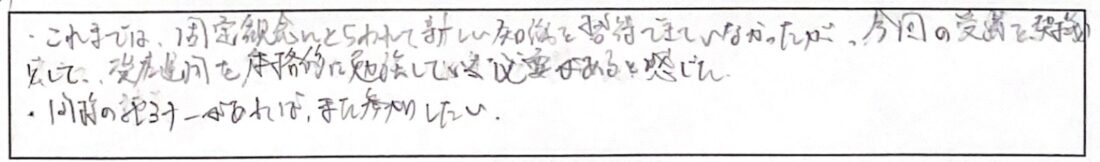 ・これまでは、固定観念にとらわれて新しい知識を習得できていなかったが、今回の受講を契機
として、資産運用を本格的に勉強していく必要があると感じた。
・同様のセミナーがあれば、また参加したい。